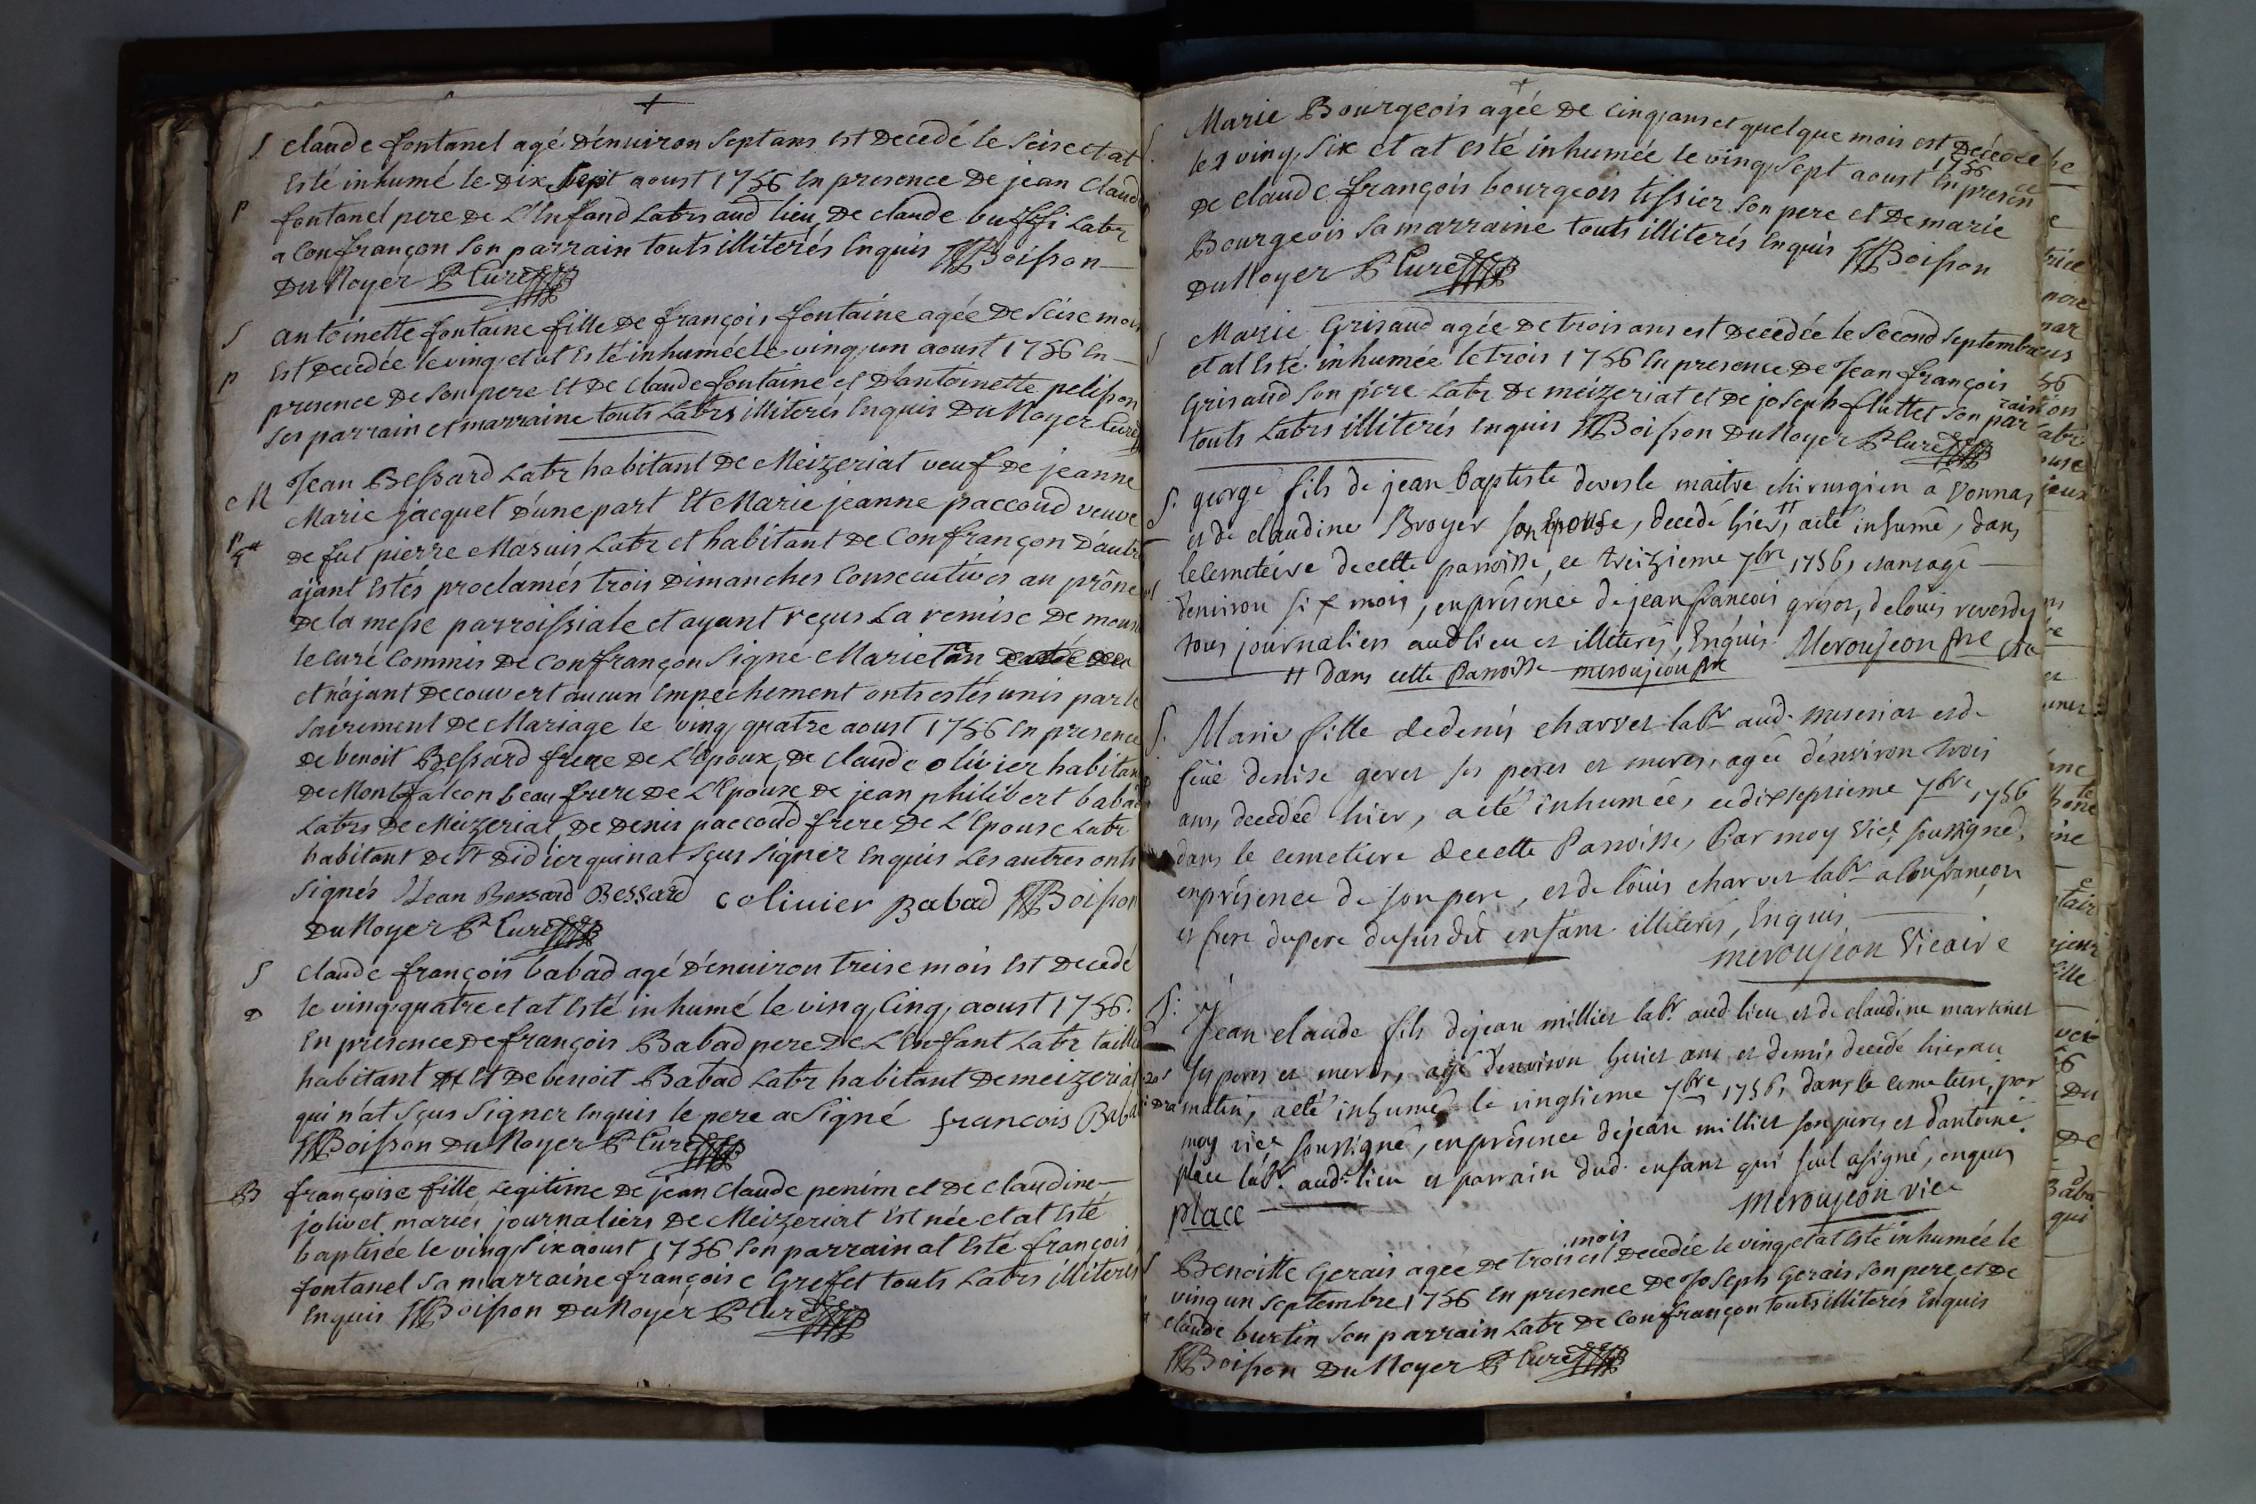 S claude fontanel agé d'enuiron sept ans est decedé le seise et at
esté inhumé le dix sept aoust 1756 en presence de jean claude
P fontanel pere de l'enfand Labrs aud lieu, de claude buffi Labr
a confrançon son parrain touts illiterés enquis Boisson
Du Noyer Pr Curé
S antoinette fontaine fille de françois fontaine agée de seise mois
P est decedée le ving et at esté inhumée le ving un aoust 1756 en
presence de son pere et de claude fontaine et d'antoinette pelisson
ses parrain et marraine touts Labrs illiterés enquis Du Noyer Curé
M Jean Bessard Labr habitant de Meizeriat veuf de jeanne
Marie jacquet d'une part et Marie jeanne paccoud veuve
P de fut pierre Maruis Labr et habitant de Confrançon d'autre
ajant estés proclamés trois dimanches consecutives au prône
de la messe parroissiale et ayant reçus la remise de monsr
le curé commis de confrançon signé Marietan
et n'ajant decouvert aucun empechement onts estés unis par le
sacrement de Mariage le ving quatre aoust 1756 en presence
de benoit Bessard frere de l'epoux, de claude olivier habitant
de Montfalcon beau frere de l'epoux de jean philibert babad
Labrs de Meizeriat, de denis paccoud frere de l'epouse Labr
habitant de St Didier qui n'at sçus signer enquis les autres onts
signés Jean Bessard Bessard c olivier Babad Boisson
Du Noyer Pr Curé
S claude françois babad agé d'enuiron treise mois est decedé
le ving quatre et at esté inhumé le ving cinq aoust 1756.
en presence de françois Babad pere de l'enfant Labr
habitant et de benoit Babad Labr habitant de meizeriat
qui n'at sçus signer enquis le pere a signé francois Babad
Boisson Du Noyer Pr Curé
B françoise fille legitime de jean claude penim et de claudine
jolivet mariés journaliers de Meizeriat est née et at esté
baptisée le ving six aoust 1756 son parrain at esté françois
fontanel sa marraine françoise Greffet touts Labrs illiterés
enquis Boisson Du Noyer Pr Curé
S. Marie Bourgeois agée de cinq ans et quelque mois est décedée
le ving six et at esté inhumée le ving sept aoust 1756 en presence
de claude françois bourgeois tissier son pere et de marie
Bourgeois sa marraine touts illiterés enquis Boisson
Du Noyer Pr Curé
S Marie Grisaud agée de trois ans est decedée le second septembre
et at esté inhumée le trois 1756 en presence de Jean françois
Grisaud son pere Labr de meizeriat et de joseph fluttet son parrain
touts Labrs illiterés enquis Boisson Du Noyer Pr Curé
S. george fils de jean baptiste devesle maitre chirurgien a vonnas
et de claudine Broyer son Epouse, decedé hier, a été inhumé, dans
le cemetiere de cette paroisse, ce treizieme 7bre 1756, etant agé
d'environ six mois, en présence de jean francois grisot, de louis reverdy
tous journaliers aud lieu et illiterés, Enquis. Meroujeon ptre
dans cette Paroisse meroujeon ptre
S. Marie fille de denis charvet labr aud. meseriat et de
feüe denise gevet ses peres et meres, agée d'environ trois
ans, decedée hier, a été inhumée, ce dix septieme 7bre, 1756
dans le cemetiere de cette Paroisse, Par moy vicr soussigné,
en présence de son pere, et de loüis charvet labr a Confrançon
et frere du pere du susdit enfant illiterés, Enquis
meroujeon Vicaire
S: Jean claude fils de jean milliet labr aud lieu et de claudine martinet
ses peres et meres, agé d'environ huict ans et demis decedé hier au
matin, a été inhumé le vingtieme 7bre 1756, dans le cemetiere, par
moy vicr soussigné, en présence de jean milliet son pere, et d'antoine
place labr aud lieu et parrain dud. enfant qui seul a signé, enquis
place Meroujeon vicr
S Benoitte Gerais agée de trois mois est decedée le ving et at esté inhumée le
ving un septembre 1756 en presence de Joseph Gerais son pere et de
claude burtin son parrain Labr de confrançon touts illiterés enquis
Boisson Du Noyer Pr Curé